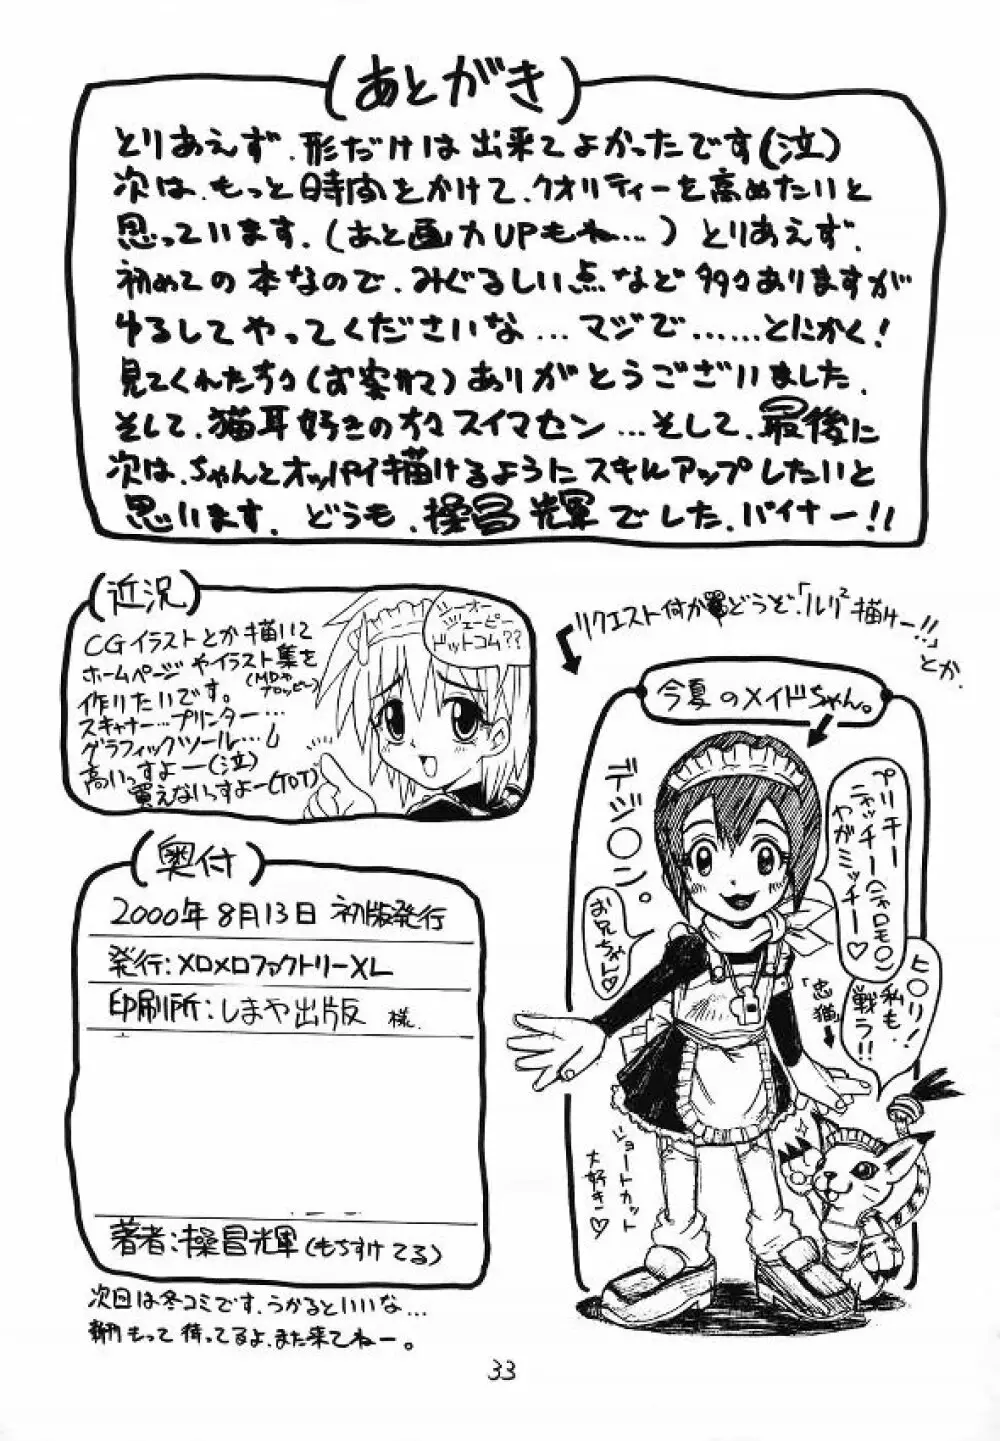 (あとがき)
とりあえず、形だけは出来てよかったです(泣)
次は、もっと時間をかけて、クオリティーを高めたいと
思っています。(あと画力UPもね…)とりあえず、
初めての本なので、みぐるしい点など多々ありますが
ゆるしてやってくださいな…マジで……とにかく!
見てくれた方々(お客サマ)ありがとうございました。
そして、猫耳好きの方々スイマセン…そして、最後に
次は、ちゃんとオッパイ描けるようにスキルアップしたいと
思います。どうも、操昌輝でした、バイナー!!
(近況)
CGイラストとか描いて
ホームページやイラスト集を
(MDやフロッピー)
作りたいです。
スキャナー…プリンター…
グラフィックツール…し
高いっすよー(泣)
買えないっすよー(TOT)
シーオー
ジェーピー
ドットコム??
リクエスト何か どうぞ、「ルリ²描けー!!」
とか。
今夏のメイドちゃん。
デジ○ン。
お兄ちゃん♡
プリキー
ニャッチー(ニャロモ○ン)
やがミッチー♡
ヒ○リ!
私も
戦う!!
「忠猫」
ショートカット
大好き♡
(奥付)
2000年8月13日 初版発行
発行:メロメロファクトリーXL
印刷所:しまや出版 様
著者:操昌輝(もちすけてる)
次回は冬コミです、うかるといいな…
もって待ってるよ、また来てねー。
33